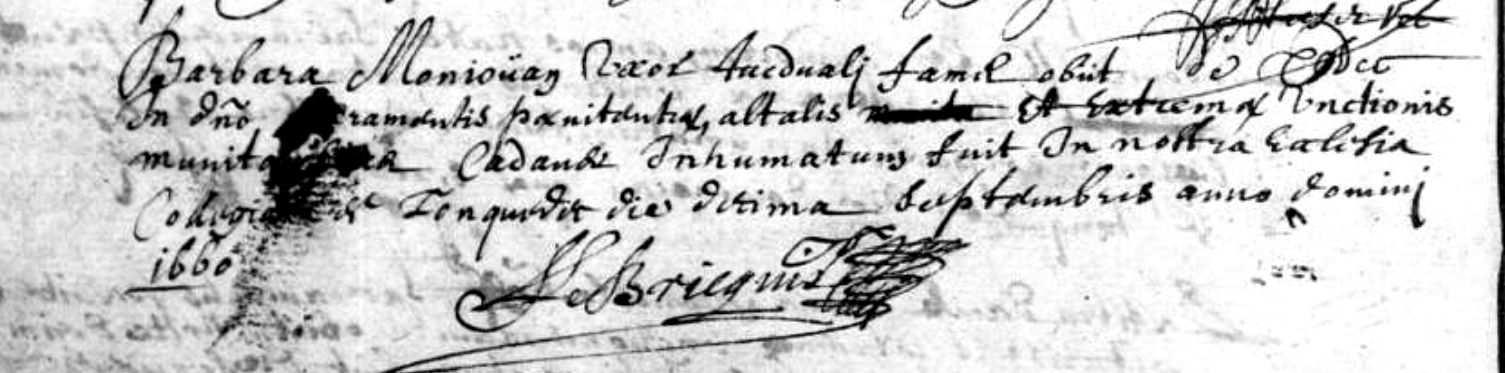 Barbara Moniouay Uxor famel obiit de
In dño ramentis pænitentiæ, altalis et Extremæ Unctionis
munita Cadauer Inhumatum fuit In nostra Ecclesia
Collegia Tonquedec die decima Septembris anno domini
1660
Le Bricquir